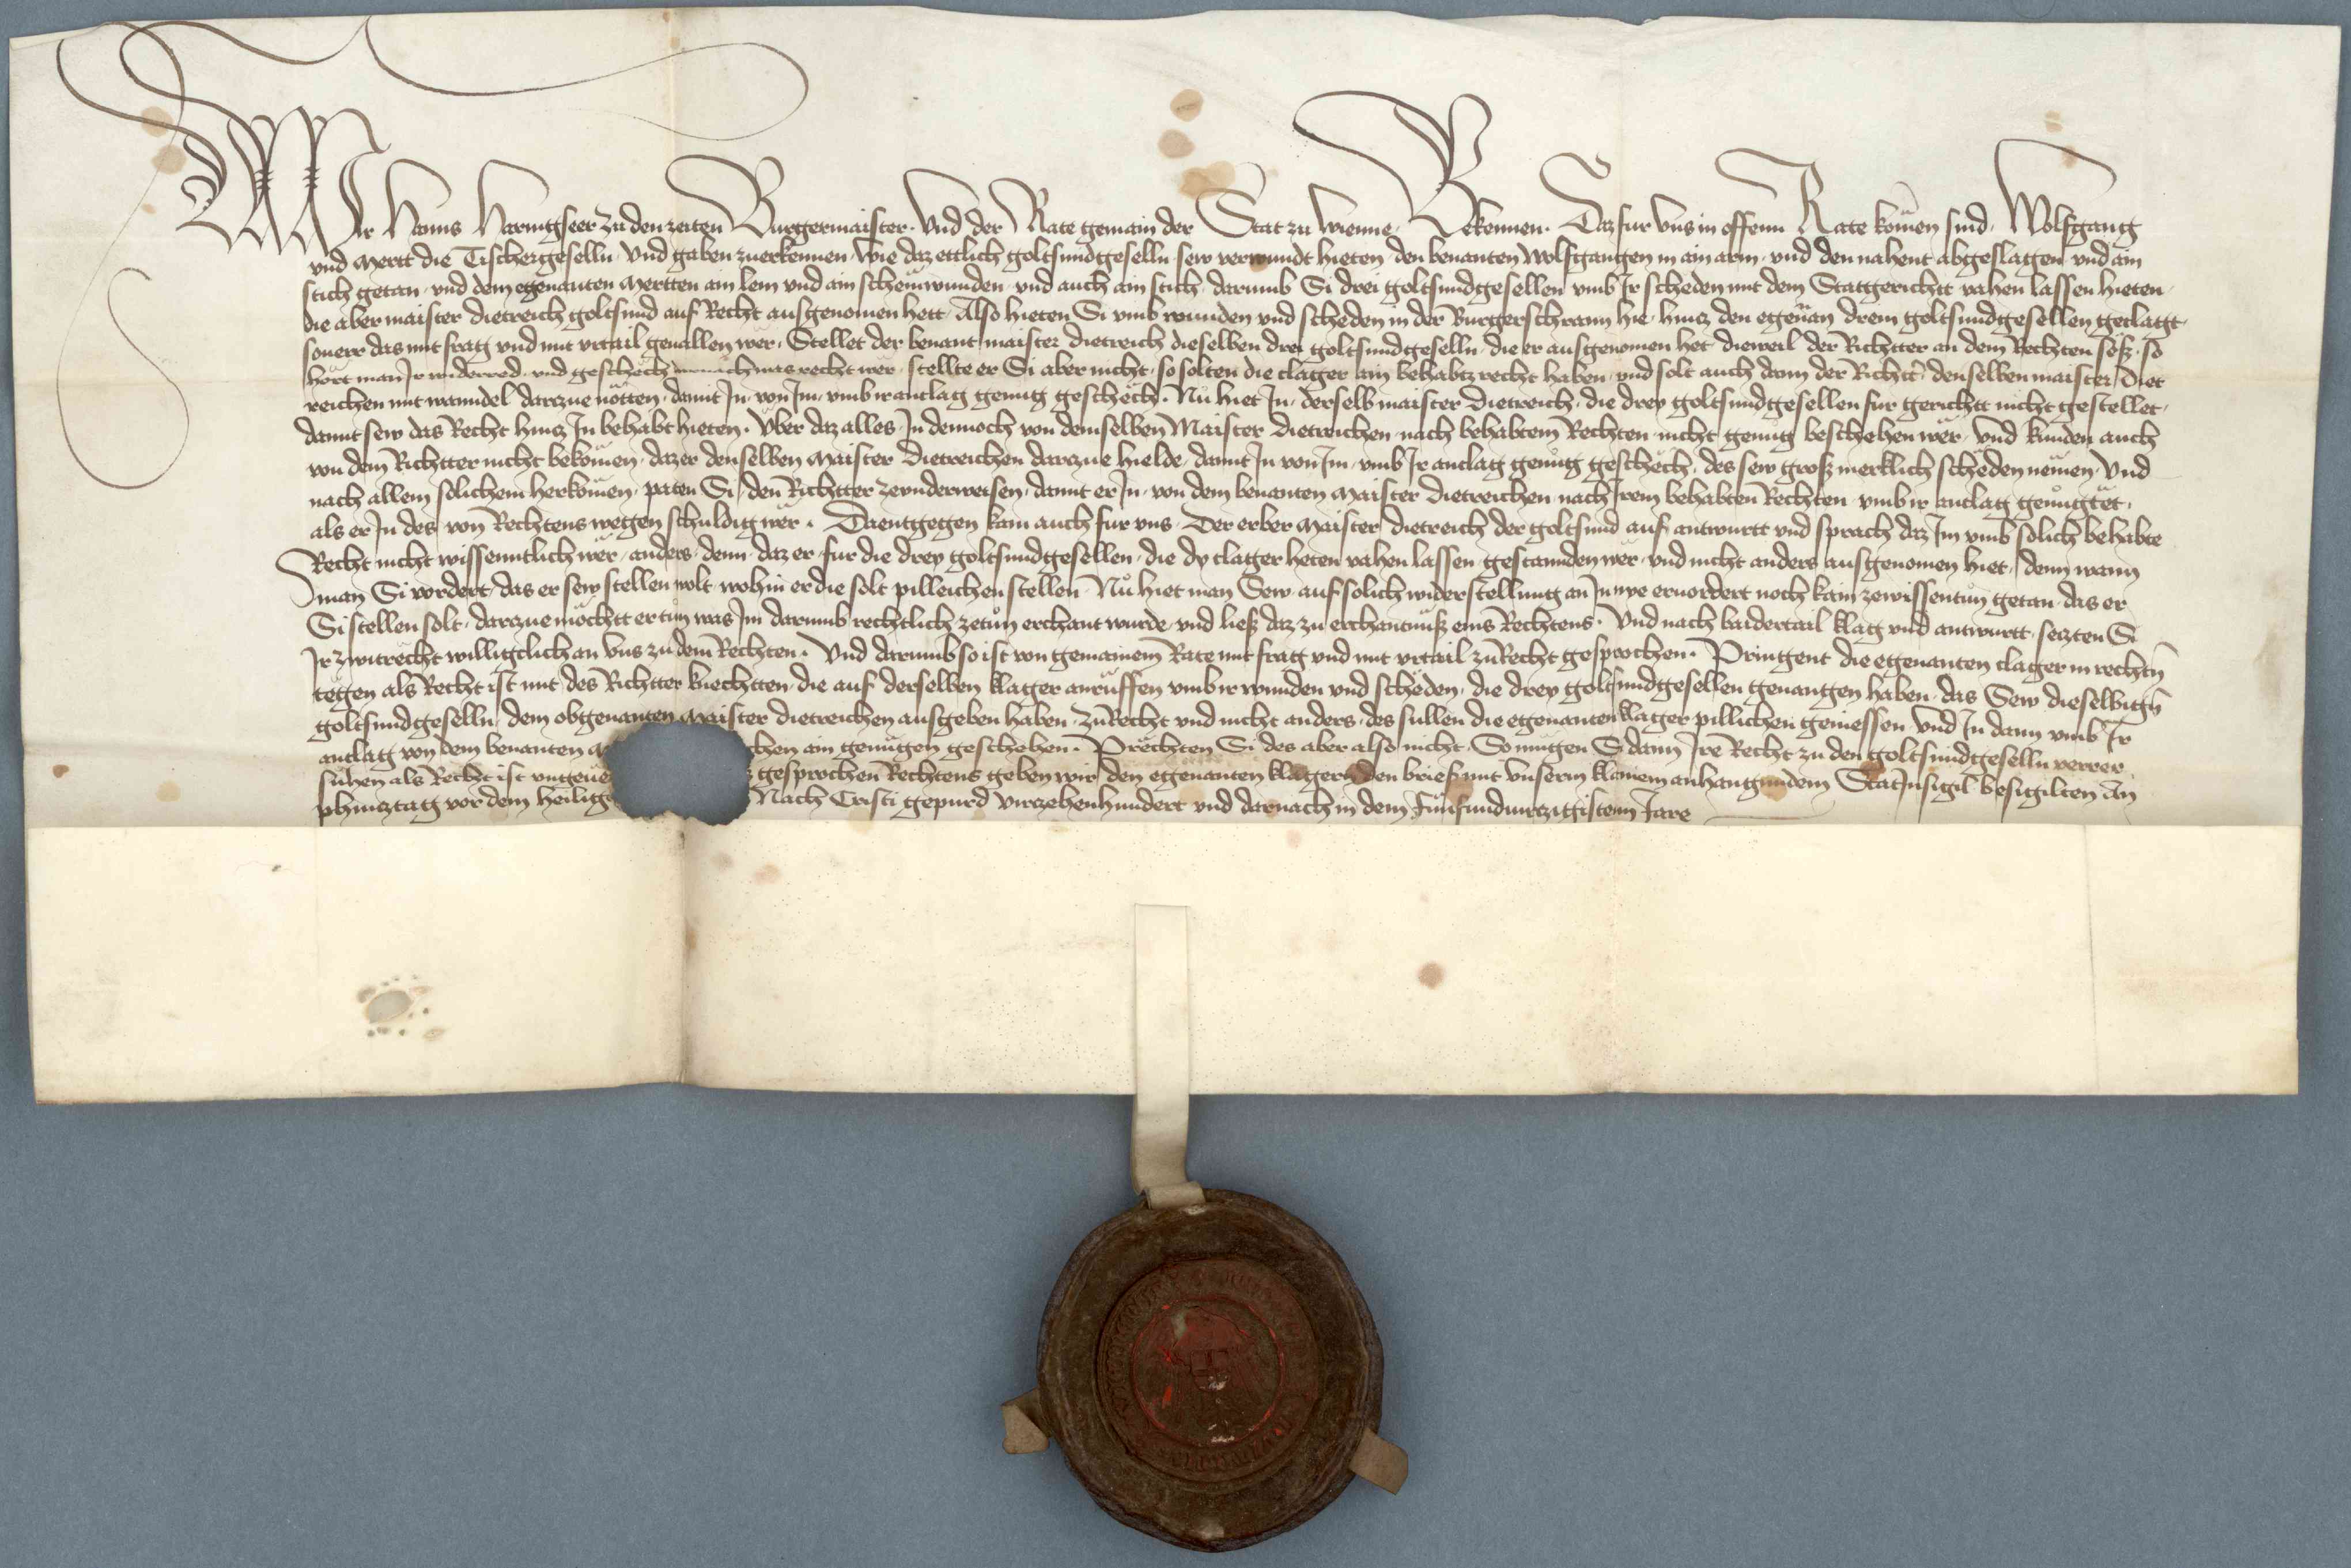 Wir Hanns Haringseer zu den zeiten Burgermaister. Vnd der Rate gemain der Stat zu Wienne, Bekennen. Daz fur vns in offenn Rate komen sind, Wolfgang
vnd Mertt die Tischergeselln, Vnd gaben zuerkennen, Wie daz ettlich goltsmidgeselln, sew verwundt hieten, den benanten Wolfgangen in ain arm, vnd den nahent abgeslagen vnd ain
stich getan, vnd dem egenanten Mertten ain lem vnd ain schenwunden, vnd auch ain stich, darumb Si drei goltsmidgesellen vmb Ir scheden mit dem Statgerichtt vahen lassen hieten,
die aber maister dietreich goltsmid auf Recht ausgenomen hett, Also hieten Si vmb wunden vnd scheden in der Burgerschrann hie, hincz den egenan drein goltsmidgesellen geclagt,
souerr das mit frag vnd mit vrtail geuallen wer, Stellet der benant maister dietreich dieselben drei goltsmidgeselln, die er ausgenomen het dieweil der Richtter an dem Rechten sëß, so
hört man Ir widerred, vnd geschech was recht wër, stellte er Si aber nicht, so solten die clager ain behabtz recht haben, vnd solt auch dann der Richtter denselben maister Diet
reichen mit wanndel darzue nötten, damit In, von Im, vmb ir anclag genug geschëch. Nu hiet In, derselb maister Dietreich, die drey goltsmidgesellen fur gerichtt nicht gestellet,
damit sew das Recht hincz In behabt hieten. Vber daz alles, In dennoch von demselben Maister Dietreichen nach behabtem Rechten nicht genug beschehen wër, Vnd kunden auch
von dem Richtter nicht bekomen, daz er denselben Maister Dietreichen darzue hielde, damit In von Im, vmb Ir anclag genug geschëch, des sew groß merklich schëden nemen, Vnd
nach allem solichem herkomen, paten Si, den Richtter zevnderweisen, damit er In, von dem benanten Maister Dietreichen nach Irem behabten Rechten vmb ir anclag genugtet,
als er In des von Rechtens wegen schuldig wër. Daentgegen kam auch fur vns, Der erber Maister dietreich der goltsmid auf antwurtt vnd sprach daz Im vmb solich behabte
Recht nicht wissenntlich wër, anders, denn, daz er, fur die drey goltsmidgesellen, die dy clager heten vahen lassen gestannden wër, vnd nicht anders ausgenomen hiet, denn wann
man Si vordert, das er sew stellen wolt, wohin er die solt pilleichen stellen, Nu hiet man Sew auf solich widerstellung an In nye eruordert noch kain zewissentun getan, das er
Si stellen solt, darzue mochtt er tun was Im darumb rechtlich zetun erchant wurde, vnd ließ daz zu erchantnuß eins Rechtens. Vnd nach baidertail klag vnd antwurtt, seczten Si
Ir zwitrëcht willigclich an vns zu dem Rechten. Vnd darumb so ist von gemainem Rate mit frag vnd mit vrtail zu Recht gesprochen. Pringent die egenanten clager in rechtn
tëgen als Recht ist mit des Richtter knechtten, die auf derselben klager anruffen vmb ir wunden vnd scheden, die drey goltsmidgesellen geuangen haben, das Sew dieselbign
goltsmidgeselln, dem obgenanten Maister dietreichen ausgeben haben, zu Recht vnd nicht anders, des sullen die egenanten klager pillichen geniessen, Vnd In dann vmb Ir
anclag von dem benanten chen ain genugen geschehen. Prëchten Si des aber also nicht, So mugen Si dann Ire Recht zu den goltsmidgeselln verrer
suhen als Recht ist vngeue gesprochen Rechtens geben wir den egenanten klagern den brief mit vnserm klainem anhangundem Stat Insigil besigilten An
phincztag vor dem heilig Nach Cristi gepurd virczehenhundert vnd darnach in dem funfundvirczigistem Jare